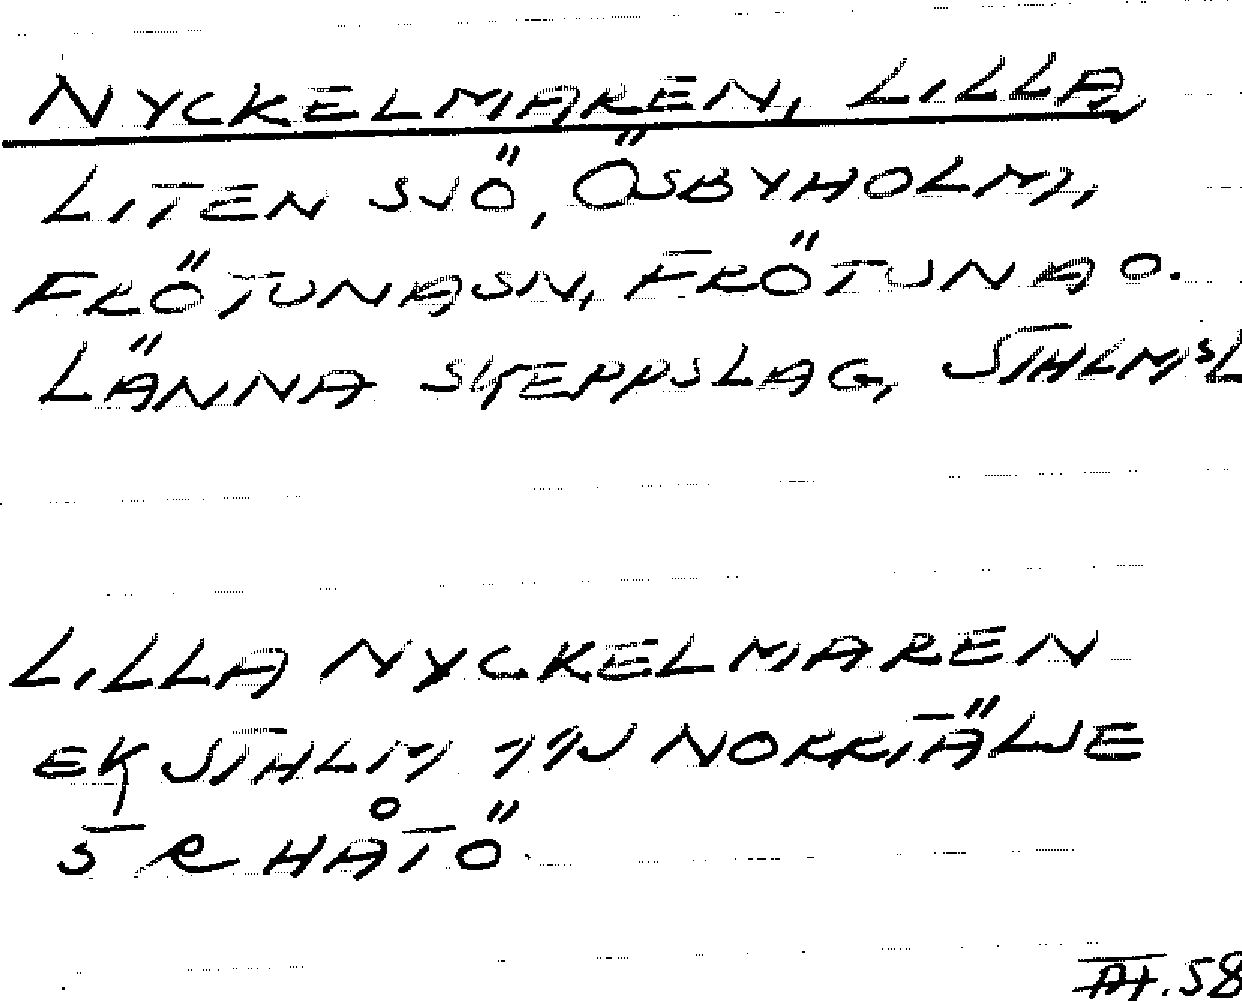 NYCKELMAREN, LILLA,
LITEN SJÖ, ÖSBYHOLM,
FRÖTUNA SN, FRÖTUNA O.
LÄNNA SKEPPSLAG, STHLMSL
LILLA NYCKELMAREN
EK STHLM 11J NORRTÄLJE
HÅTÖ
.58